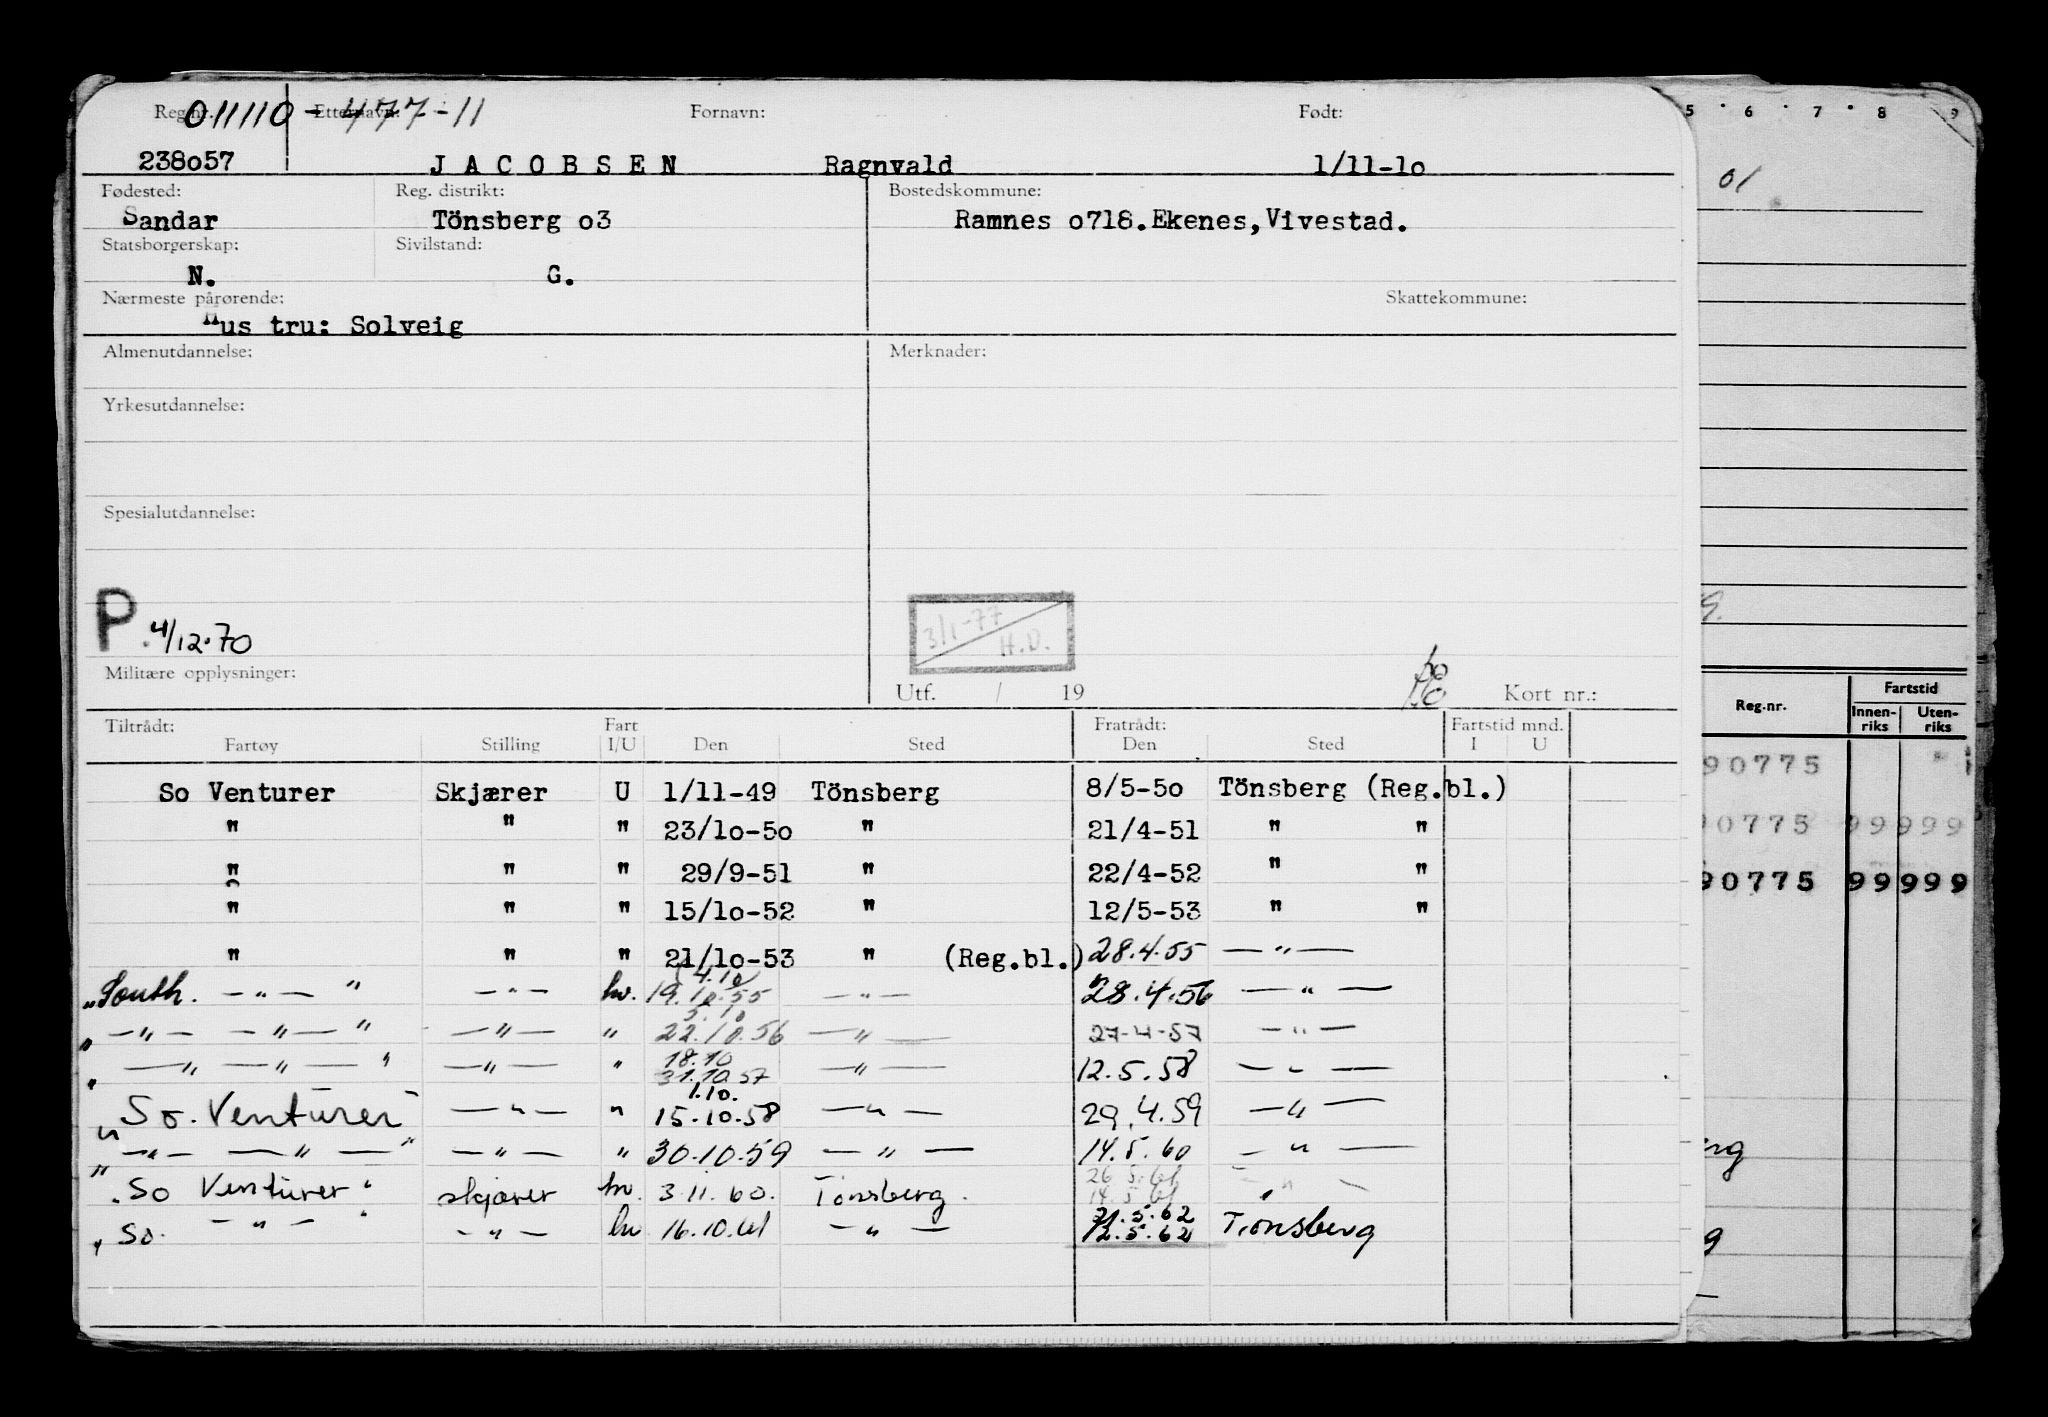 Reg.nr. 011110-477-11 Etternavn: Fornavn: Født:
238o57 JACOBSEN Ragnvald 1/11-1o
Fødested: Reg. distrikt: Bostedskommune:
Sandar Tönsberg o3 Ramnes o718.Ekenes,Vivestad.
Statsborgerskap: Sivilstand:
N. G.
Nærmeste pårørende: Skattekommune:
Hus tru: Solveig
Almenutdannelse: Merknader:
Yrkesutdannelse:
Spesialutdannelse:
P. 4/12.70 3/1-77 H.D.
Militære opplysninger: Utf. / 19 Kort nr.:
Tiltrådt: Fart Fratrådt: Fartstid mnd.
Fartøy Stilling I/U Den Sted Den Sted I U
So Venturer Skjærer U 1/11-49 Tönsberg 8/5-5o Tönsberg (Reg.bl.)
" " " 23/1o-5o " 21/4-51 " "
" " " 29/9-51 " 22/4-52 " "
" " " 15/1o-52 " 12/5-53 " "
" " " 21/1o-53 " (Reg.bl.) 28.4.55 — " —
4.10
"South. — " — " — " — hv. 19.10.55 — " — 28.4.56 — " —
5.10
" — " — — " — " — " — " 22.10.56 — " — 27-4-57 — " —
18.10
" — " — " — " — " — " 31.10.57 — " — 12.5.58 — " —
1.10.
"So. Venturer" — " — " 15.10.58 — " — 29.4.59 — " —
" — " — — " — " — " — " 30.10.59 — " — 14.5.60 — " —
26.5.61
"So Venturer" skjærer hv. 3.11.60. Tönsberg. 14.5.61 — " —
21.5.62
"So. — " — " — " — hv 16.10.61 — " — 12.5.62 Tönsberg
5 · 6 · 7 · 8 · 9
01
Reg.nr. Fartstid
Innen-riks Uten-riks
90775
90775 99999
90775 99999